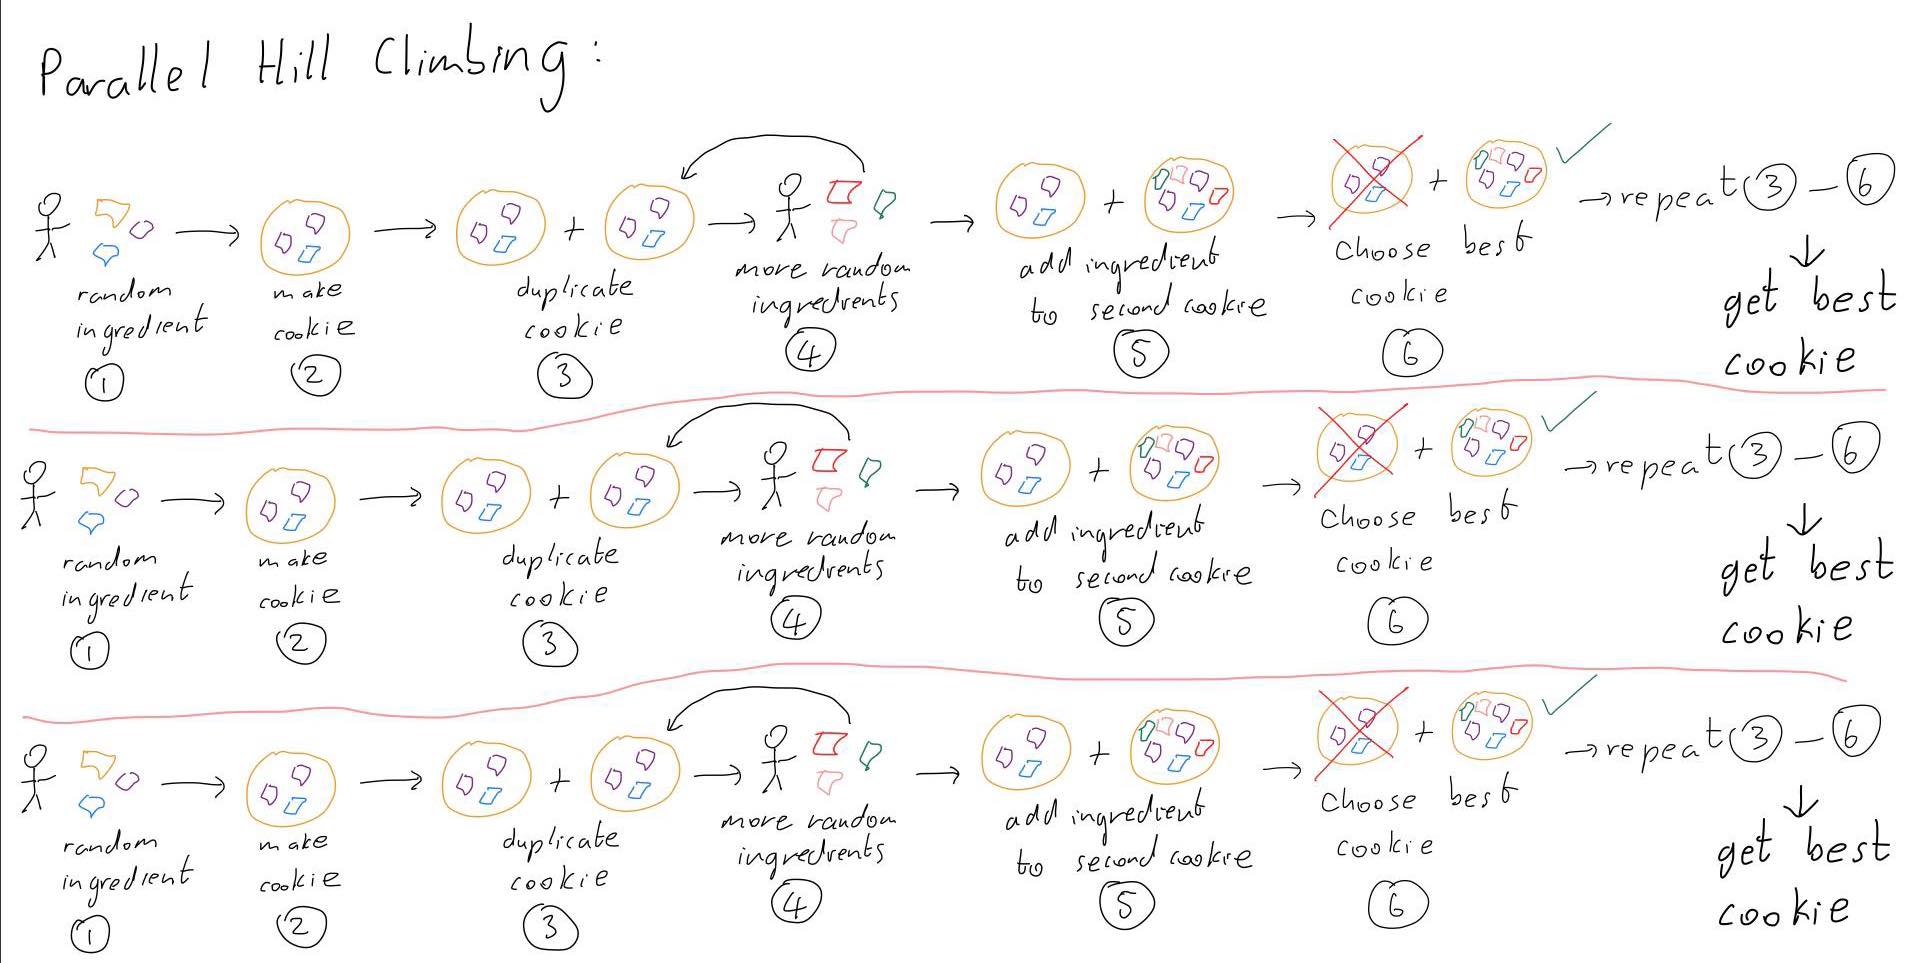 Parallel Hill Climbing:
random
ingredient
1
make
cookie
2
duplicate
cookie
3
more random
ingredients
4
add ingredient
to second cookie
5
choose best
cookie
6
repeat 3 - 6
get best
cookie
random
ingredient
1
make
cookie
2
duplicate
cookie
3
more random
ingredients
4
add ingredient
to second cookie
5
choose best
cookie
6
repeat 3 - 6
get best
cookie
random
ingredient
1
make
cookie
2
duplicate
cookie
3
more random
ingredients
4
add ingredient
to second cookie
5
choose best
cookie
6
repeat 3 - 6
get best
cookie